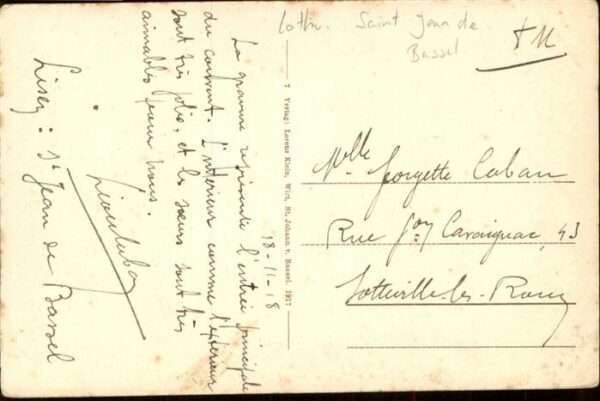 Lothr. Saint Jean de
Bassel
F M
Mlle Georgette Cuban
Rue Gon Cavaignac, 43
Sotteville-les-Rouen
7 Verlag: Lorenz Klein, Wirt, St. Johann v. Bassel. 1917
18-11-18
La gravure représente l'entrée principale
du couvent. L'intérieur comme l'extérieur
sont très jolis, et les sœurs sont très
aimables pour nous.
Lisez : St Jean de Bassel